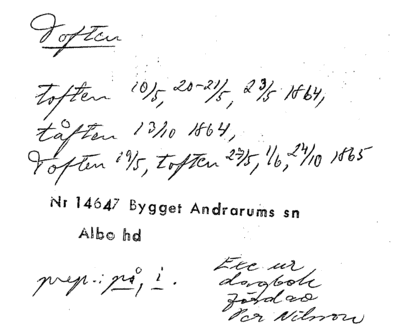 Toften
toften 10/5, 20-21/5, 23/5 1864,
tåften 13/10 1864,
Toften 19/5, toften 27/5, 1/6, 24/10 1865
Nr 14647 Bygget Andrarums sn
Albo hd
prep.: på, i.
Exc. ur
dagbok
förd av
Per Nilsson